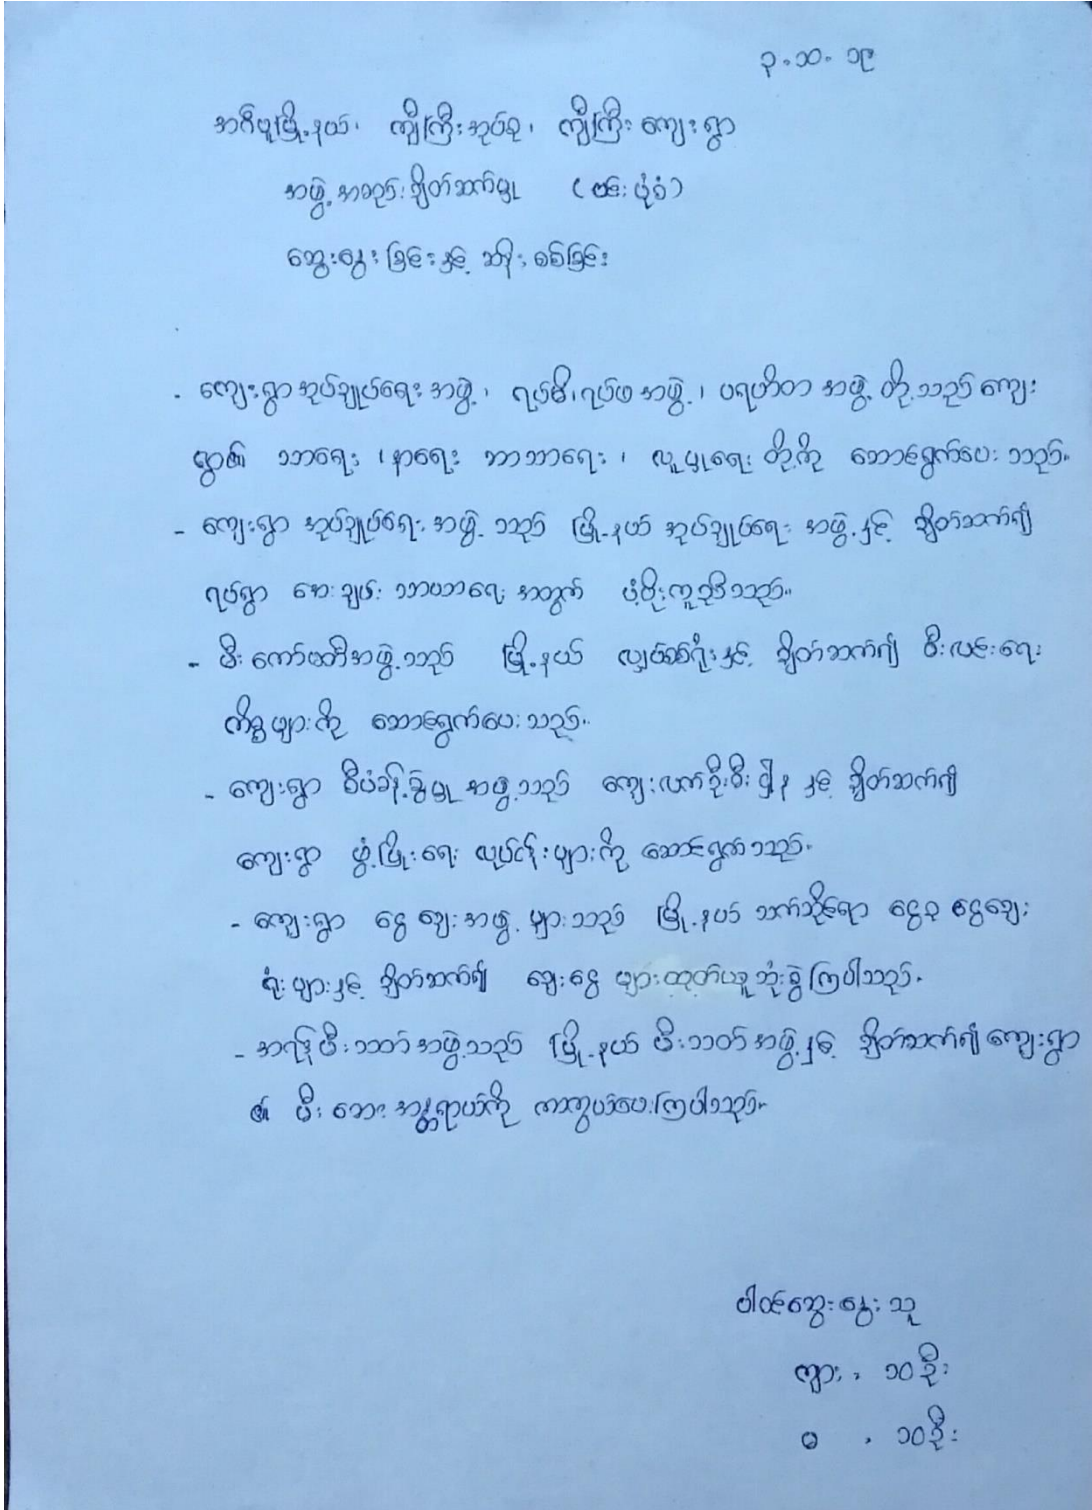 ၃.၁၀.၁၉
အင်္ဂပူမြို့နယ်၊ ကျီကြီးအုပ်စု၊ ကျီကြီးကျေးရွာ
အဖွဲ့အစည်းချိတ်ဆက်မှု (ပန်းပုံစံ)
ဆွေးနွေးခြင်းနှင့် ဆန်းစစ်ခြင်း
- ကျေးရွာအုပ်ချုပ်ရေးအဖွဲ့၊ ရပ်မိ၊ရပ်ဖအဖွဲ့၊ ပရဟိတအဖွဲ့တို့သည် ကျေး
ရွာ၏ သာရေး၊နာရေး ဘာသာရေး၊ လူမှုရေးတို့ကို ဆောင်ရွက်ပေးသည်။
- ကျေးရွာအုပ်ချုပ်ရေးအဖွဲ့သည် မြို့နယ်အုပ်ချုပ်ရေးအဖွဲ့နှင့် ချိတ်ဆက်၍
ရပ်ရွာ အေးချမ်းသာယာရေးအတွက် ပံ့ပိုးကူညီသည်။
- မီးကော်မတီအဖွဲ့သည် မြို့နယ် လျှပ်စစ်ရုံးနှင့် ချိတ်ဆက်၍ မီးလင်းရေး
ကိစ္စများကို ဆောင်ရွက်ပေးသည်။
- ကျေးရွာ စီမံခန့်ခွဲမှုအဖွဲ့သည် ကျေးလက်ဦးစီးဌာနနှင့် ချိတ်ဆက်၍
ကျေးရွာ ဖွံ့ဖြိုးရေး လုပ်ငန်းများကို ဆောင်ရွက်သည်။
- ကျေးရွာ ငွေချေးအဖွဲ့များသည် မြို့နယ် သက်ဆိုင်ရာ ငွေစု ငွေချေး
ရုံးများနှင့် ချိတ်ဆက်၍ ချေးငွေများထုတ်ယူသုံးစွဲကြပါသည်။
- အရန်မီးသတ်အဖွဲ့သည် မြို့နယ် မီးသတ်အဖွဲ့နှင့် ချိတ်ဆက်၍ကျေးရွာ
၏ မီးဘေးအန္တရာယ်ကို ကာကွယ်ပေးကြပါသည်။
ပါဝင်ဆွေးနွေးသူ
ကျား၊ ၁၀ဦး
မ ၊ ၁၀ဦး